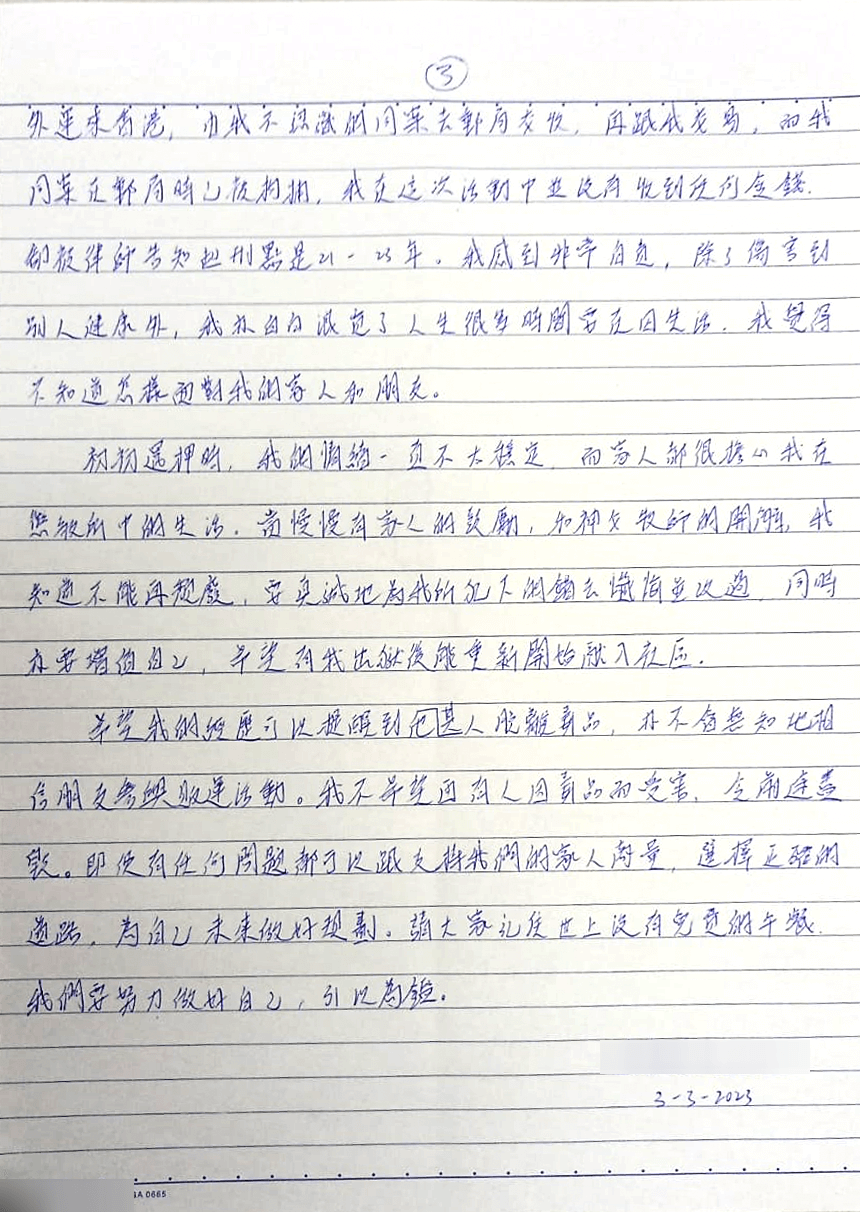 ③
外運來香港，由我不認識的同案去郵局交收，再跟我交易，而我
同案在郵局時已被拘捕，我在這次活動中並沒有收到任何金錢．
卻被律師告知起刑點是21-23年。我感到非常自負，除了傷害到
別人健康外，我亦白白浪費了人生很多時間要在囚生活．我覺得
不知道怎樣面對我的家人和朋友。
初初還押時，我的情緒一直不太穩定，而家人都很擔心我在
懲教所中的生活．當慢慢有家人的鼓勵，和神父牧師的開解，我
知道不能再頹廢，要真誠地為我所犯下的錯去懺悔並改過．同時
亦要增值自己，希望有我出獄後能重新開始融入社區．
希望我的經歷可以提醒到他其人脫離毒品，亦不會無知地相
信朋友參與販運活動。我不希望再有人因毒品而受害，令前途盡
毀。即使有任何問題都可以跟支持我們的家人商量，選擇正確的
道路，為自己未來做好規劃。請大家記住世上沒有免費的午餐．
我們要努力做好自己，引以為鑑．
3-3-2023
GA 0665